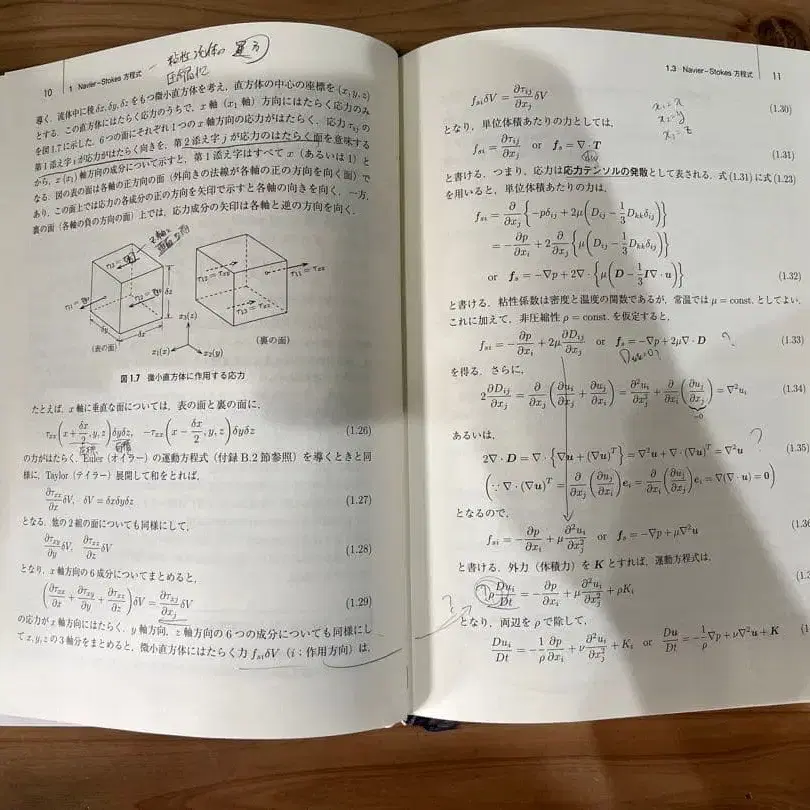 10 1 Navier−Stokes 方程式
粘性流体の
導く.流体中に稜δx, δy, δzをもつ微小直方体を考え,直方体の中心の座標を(x, y, z)
とする.この直方体にはたらく応力のうちで,x軸(x₁軸)方向にはたらく応力のみ
を図1.7に示した.6つの面にそれぞれ1つのx軸方向の応力がはたらく.応力τᵢⱼの
第1添え字iが応力がはたらく向きを,第2添え字jが応力のはたらく面を意味する
から,x(x₁)軸方向の成分について示すと,第1添え字はすべてx(あるいは1)と
なる.図の表の面は各軸の正方向の面(外向きの法線が各軸の正の方向を向く面)で
あり,この面上では応力の各成分の正の方向を矢印で示すと各軸の向きを向く.一方,
裏の面(各軸の負の方向の面)上では,応力成分の矢印は各軸と逆の方向を向く.
z軸に
δz
δy
δx
(表の面)
x₃(z)
x₁(x)
x₂(y)
τ₁₁ = τₓₓ
(裏の面)
図1.7 微小直方体に作用する応力
たとえば,x軸に垂直な面については,表の面と裏の面に,
τₓₓ(x + δx/2, y, z)δyδz, −τₓₓ(x − δx/2, y, z)δyδz (1.26)
の力がはたらく.Euler(オイラー)の運動方程式(付録B.2節参照)を導くときと同
様に,Taylor(テイラー)展開して和をとれば,
∂τₓₓ/∂x δV, δV = δxδyδz (1.27)
となる.他の2組の面についても同様にして,
∂τₓᵧ/∂y δV, ∂τₓz/∂z δV (1.28)
となり,x軸方向の6成分についてまとめると,
(∂τₓₓ/∂x + ∂τₓᵧ/∂y + ∂τₓz/∂z)δV = ∂τₓⱼ/∂xⱼ δV (1.29)
の応力がx軸方向にはたらく.y軸方向,z軸方向の6つの成分についても同様にし
てx, y, zの3軸分をまとめると,微小直方体にはたらく力fₛᵢδV(i:作用方向)は,
1.3 Navier−Stokes 方程式 11
fₛᵢδV = ∂τᵢⱼ/∂xⱼ δV (1.30)
x₁=x
x₂=y
x₃=z
となり,単位体積あたりの力としては,
fₛᵢ = ∂τᵢⱼ/∂xⱼ or fₛ = ∇·T (1.31)
div
と書ける.つまり,応力は応力テンソルの発散として表される.式(1.31)に式(1.23)
を用いると,単位体積あたりの力は,
fₛᵢ = ∂/∂xⱼ {−pδᵢⱼ + 2μ(Dᵢⱼ − 1/3 Dₖₖδᵢⱼ)}
= −∂p/∂xᵢ + 2∂/∂xⱼ {μ(Dᵢⱼ − 1/3 Dₖₖδᵢⱼ)}
or fₛ = −∇p + 2∇·{μ(D − 1/3 I∇·u)} (1.32)
と書ける.粘性係数は密度と温度の関数であるが,常温ではμ = const.としてよい.
これに加えて,非圧縮性ρ = const.を仮定すると,
fₛᵢ = −∂p/∂xᵢ + 2μ ∂Dᵢⱼ/∂xⱼ or fₛ = −∇p + 2μ∇·D (1.33)
?
を得る.さらに,
2 ∂Dᵢⱼ/∂xⱼ = ∂/∂xⱼ (∂uᵢ/∂xⱼ + ∂uⱼ/∂xᵢ) = ∂²uᵢ/∂xⱼ² + ∂/∂xᵢ (∂uⱼ/∂xⱼ) = ∇²uᵢ (1.34)
=0
あるいは,
2∇·D = ∇·{∇u + (∇u)ᵀ} = ∇²u + ∇·(∇u)ᵀ = ∇²u (1.35)
?
(∵ ∇·(∇u)ᵀ = ∂/∂xⱼ (∂uⱼ/∂xᵢ)eᵢ = ∂/∂xᵢ (∂uⱼ/∂xⱼ)eᵢ = ∇(∇·u) = 0)
となるので,
fₛᵢ = −∂p/∂xᵢ + μ ∂²uᵢ/∂xⱼ² or fₛ = −∇p + μ∇²u
と書ける.外力(体積力)をKとすれば,運動方程式は,
? ρ Duᵢ/Dt = −∂p/∂xᵢ + μ ∂²uᵢ/∂xⱼ² + ρKᵢ
となり,両辺をρで除して,
Duᵢ/Dt = −1/ρ ∂p/∂xᵢ + ν ∂²uᵢ/∂xⱼ² + Kᵢ or Du/Dt = −1/ρ ∇p + ν∇²u + K